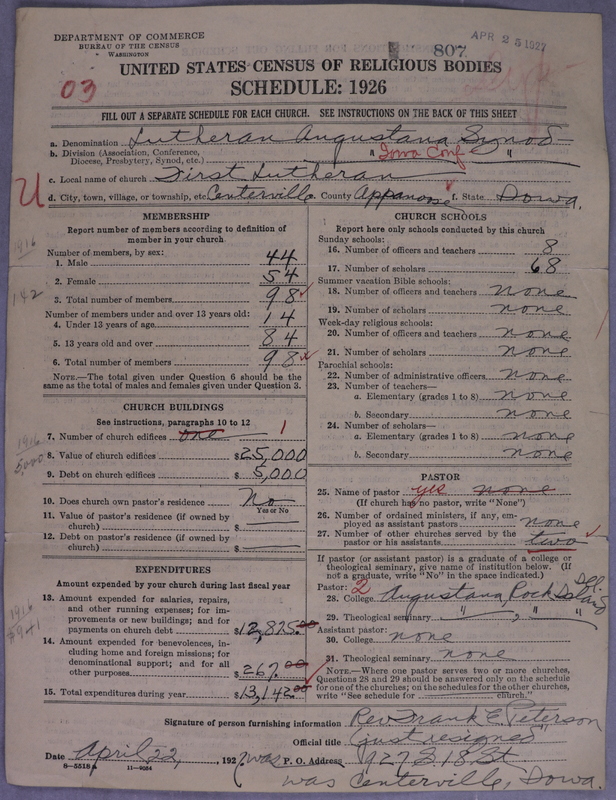 DEPARTMENT OF COMMERCE
BUREAU OF THE CENSUS
WASHINGTON
807
APR 25 1927
UNITED STATES CENSUS OF RELIGIOUS BODIES
SCHEDULE: 1926
03
FILL OUT A SEPARATE SCHEDULE FOR EACH CHURCH. SEE INSTRUCTIONS ON THE BACK OF THIS SHEET
a. Denomination Lutheran Augustana Synod
b. Division (Association, Conference, Diocese, Presbytery, Synod, etc.) " Iowa Conf "
c. Local name of church First Lutheran
U
d. City, town, village, or township, etc. Centerville e. County Appanoose f. State Iowa.
MEMBERSHIP
Report number of members according to definition of
member in your church
1916
Number of members, by sex:
1. Male 44
2. Female 54
142
3. Total number of members 98
Number of members under and over 13 years old:
4. Under 13 years of age 14
5. 13 years old and over 84
6. Total number of members 98
NOTE.—The total given under Question 6 should be the
same as the total of males and females given under Question 3.
CHURCH BUILDINGS
See instructions, paragraphs 10 to 12
7. Number of church edifices one 1
1916
5,000
8. Value of church edifices $25,000
9. Debt on church edifices $5,000
10. Does church own pastor's residence No
Yes or No
11. Value of pastor's residence (if owned by
church) $
12. Debt on pastor's residence (if owned by
church) $
EXPENDITURES
Amount expended by your church during last fiscal year
1916
$941
13. Amount expended for salaries, repairs,
and other running expenses; for im-
provements or new buildings; and for
payments on church debt $12,875.00
14. Amount expended for benevolences, in-
cluding home and foreign missions; for
denominational support; and for all
other purposes $267.00
15. Total expenditures during year $13,142.00
CHURCH SCHOOLS
Report here only schools conducted by this church
Sunday schools:
16. Number of officers and teachers 8
17. Number of scholars 68
Summer vacation Bible schools:
18. Number of officers and teachers none
19. Number of scholars none
Week-day religious schools:
20. Number of officers and teachers none
21. Number of scholars none
Parochial schools:
22. Number of administrative officers none
23. Number of teachers—
a. Elementary (grades 1 to 8) none
b. Secondary none
24. Number of scholars—
a. Elementary (grades 1 to 8) none
b. Secondary none
PASTOR
25. Name of pastor yes none
(If church has no pastor, write "None")
26. Number of ordained ministers, if any, em-
ployed as assistant pastors none
27. Number of other churches served by the
pastor or his assistants two
If pastor (or assistant pastor) is a graduate of a college or
theological seminary, give name of institution below. (If
not a graduate, write "No" in the space indicated.)
Pastor: 2
28. College Augustana Rock Island Ill.
29. Theological seminary " , " "
Assistant pastor:
30. College none
31. Theological seminary none
NOTE.—Where one pastor serves two or more churches,
Questions 28 and 29 should be answered only on the schedule
for one of the churches; on the schedules for the other churches,
write "See schedule for church."
Signature of person furnishing information Rev Frank E Peterson
Official title (just resigned)
Date April 22, 1927 was P. O. Address 927 S 18 St
8-5518a 11-9054
was Centerville, Iowa.